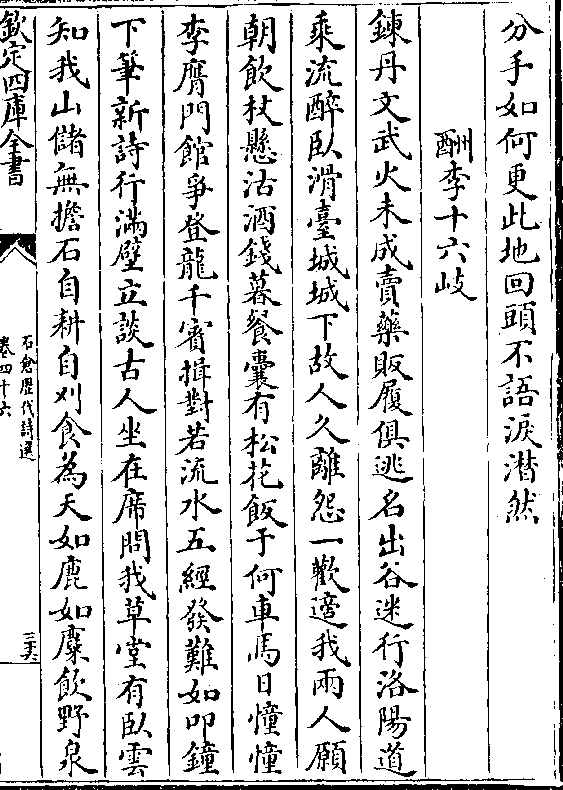 分手如何更此地回頭不語淚潸然
酬李十六岐
鍊丹文武火未成賣藥販履俱逃名出谷迷行洛陽道
乘流醉臥滑臺城城下故人久離怨一歡適我兩人願
朝飲杖懸沽酒錢暮餐囊有松花飯于何車馬日憧憧
李膺門館爭登龍千賓揖對若流水五經發難如叩鐘
下筆新詩行滿壁立談古人坐在席問我草堂有臥雲
知我山儲無擔石自耕自刈食為天如鹿如麋飲野泉
欽定四庫全書
石倉歷代詩選
卷四十六